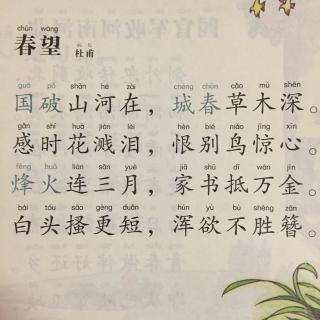 chūn wàng
春望
杜甫
guó pò shān hé zài chéng chūn cǎo mù shēn
国破山河在，城春草木深。
gǎn shí huā jiàn lèi hèn bié niǎo jīng xīn
感时花溅泪，恨别鸟惊心。
fēng huǒ lián sān yuè jiā shū dǐ wàn jīn
烽火连三月，家书抵万金。
bái tóu sāo gèng duǎn hún yù bù shèng zān
白头搔更短，浑欲不胜簪。